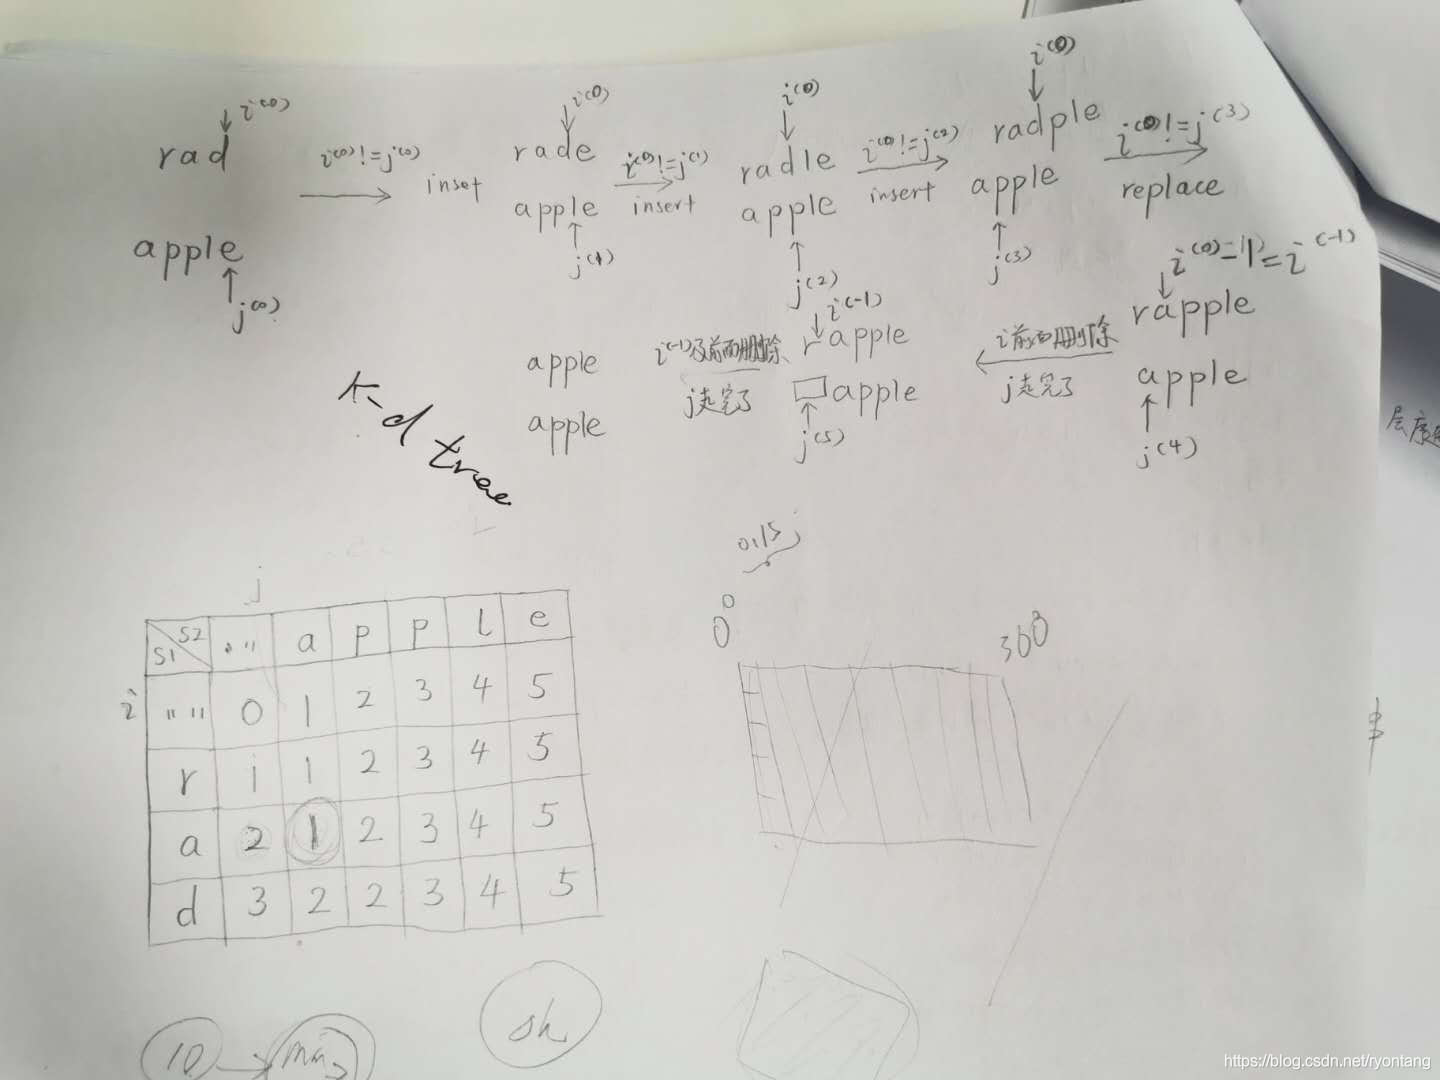 i(0)
rad
apple
j(0)
i(0)!=j(0)
inset
i(0)
rade
apple
j(1)
i(0)!=j(1)
insert
i(0)
radle
apple
j(2)
i(0)!=j(2)
insert
i(0)
radple
apple
j(3)
i(0)!=j(3)
replace
i(0)-1=i(-1)
rapple
apple
j(4)
i前面删除
j走完了
i(-1)
rapple
apple
j(5)
i(-1)及前面删除
j走完了
apple
apple
k-d tree
层序
j
S2 "" a p p l e
S1
i "" 0 1 2 3 4 5
r 1 1 2 3 4 5
a 2 1 2 3 4 5
d 3 2 2 3 4 5
0
360
10
sh
https://blog.csdn.net/ryontang